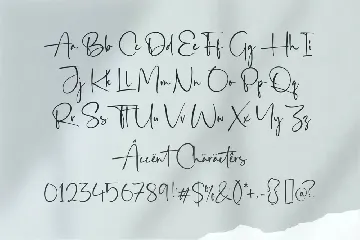 Aa Bb Cc Dd Ee Ff Gg Hh Ii
Jj Kk Ll Mm Nn Oo Pp Qq
Rr Ss Tt Uu Vv Ww Xx Yy Zz
Accent Characters
0123456789!:#$%&()*+.-{}[]@?